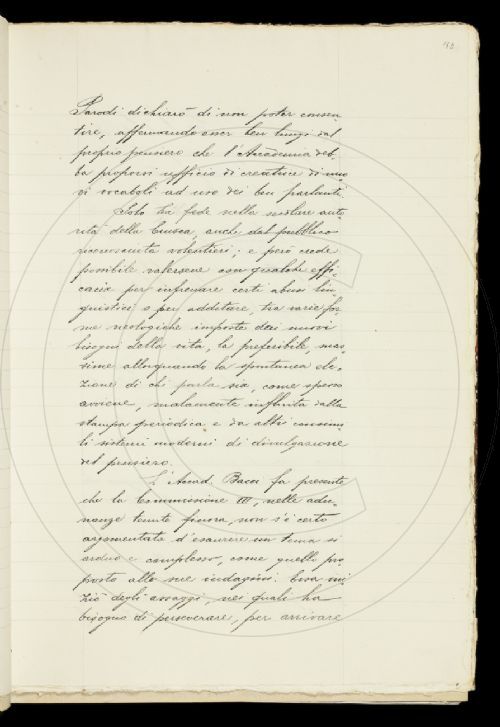 Parodi dichiarò di non poter consen
tire, affermando esser ben lungi dal
proprio pensiero che l'Accademia deb-
ba proporsi ufficio di creatrice di nuo-
vi vocaboli ad uso dei ben parlanti.
Solo ha fede nella secolare auto
rità della Crusca, anche dal pubblico
riconosciuta volentieri; e però crede
possibile valersene con qualche effi-
cacia per infrenare certi abusi lin-
guistici e per additare, tra varie for
me neologiche imposte dai nuovi
bisogni della vita, la preferibile, mas-
sime allorquando la spontanea ele-
zione di chi parla sia, come spesso
avviene, malamente influita dalla
stampa periodica e da altri consimi-
li sistemi moderni di divulgazione
del pensiero.
L'Accad. Bacci fa presente
che la Commissione III, nelle adu-
nanze tenute finora, non s'è certo
argomentata d'esaurire un tema sì
arduo e complesso, come quello pro
posto alle sue indagini. Essa ini
ziò degli assaggi, nei quali ha
bisogno di perseverare, per arrivare